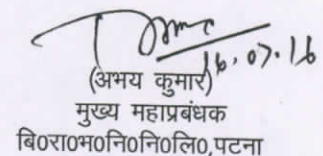 16.07.16
(अभय कुमार)
मुख्य महाप्रबंधक
बि०रा०भ०नि०नि०लि०,पटना